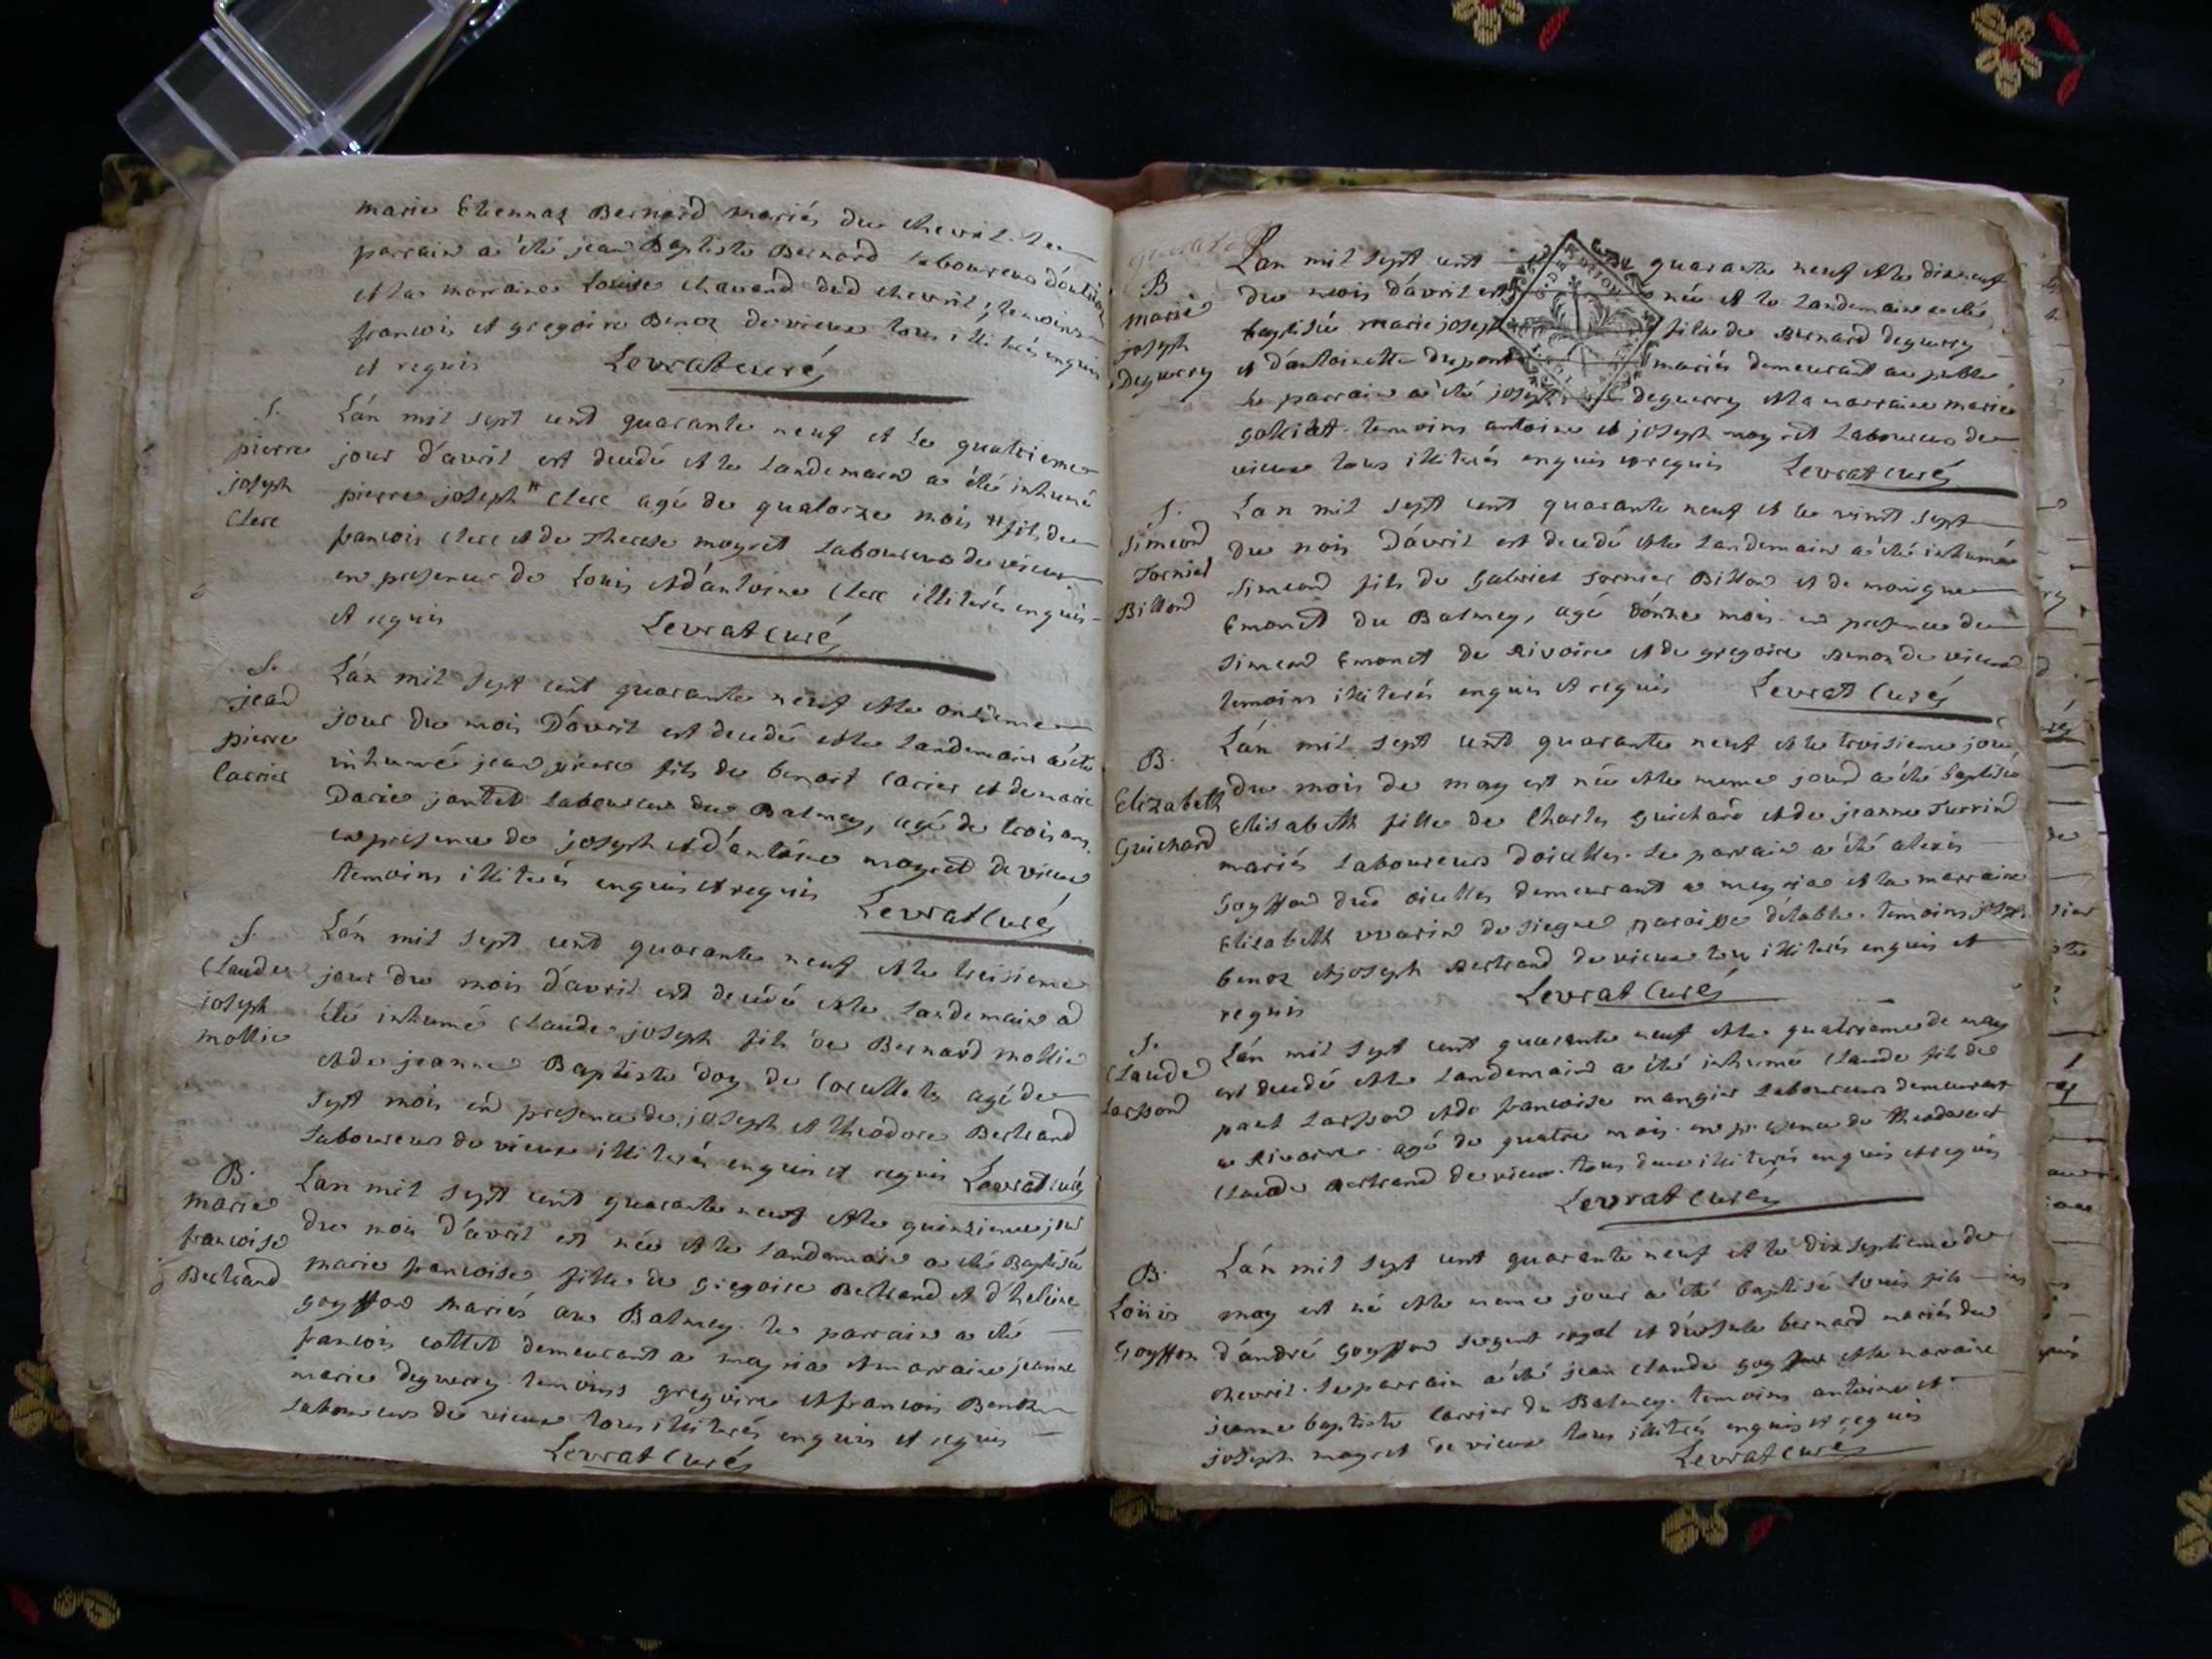 marie Etiennaz Bernard mariés du chevril. Le
parrain a été jean Baptiste Bernard laboureur
et la marraine Louise chavand dud chevril, temoins
francois et gregoire Benoz de vieux tous illiterés enquis
et requis Levrat curé
S.
pierre
joseph
Clerc
L'an mil sept cent quarante neuf et le quatrieme
jour d'avril est decedé et le landemain a été inhumé
pierre joseph " Clerc agé de quatorze mois " fils de
francois Clerc et de therese moyret laboureurs de vieux
en presence de Louis et d'antoine Clerc illiterés enquis
et requis Levrat curé
S.
jean
pierre
Carrier
L'an mil sept cent quarante neuf et le onzieme
jour du mois D'avril est decedé et le landemain a été
inhumé jean pierre fils de benoit Carier et de marie
Darie jantet laboureurs du Balmey, agé de trois ans
en presence de joseph et d'antoine moyret de vieux
temoins illiterés enquis et requis Levrat Curé
S.
Claude
joseph
mollie
L'an mil sept cent quarante neuf et le treisieme
jour du mois d'avril est decedé et le landemain a
été inhumé Claude joseph fils de Bernard mollie
et de jeanne Baptiste doy de agé de
sept mois en presence de joseph et theodore Bertrand
laboureurs de vieux illiterés enquis et requis Levrat curé
B.
marie
francoise
Bertrand
L'an mil sept cent quarante neuf et le quinzieme jour
du mois d'avril est née et le landemain a été Baptisée
marie francoise fille de gregoire Bertrand et d'helene
goyffon mariés au Balmey. le parrain a été
francois collet demeurant a mayria et marraine jeanne
marie deguerry. temoins gregoire et francois Benoz
laboureurs de vieux tous illiterés enquis et requis
Levrat Curé
B
marie
joseph
Deguerry
L'an mil sept cent quarante neuf et le dixneuf
du mois d'avril est née et le landemain a été
baptisée marie joseph fille de Bernard deguerry
et d'antoinette dupont mariés demeurant au
le parrain a été joseph deguerry et la marraine marie
temoins antoine et joseph moyret laboureurs de
vieux tous illiterés enquis et requis Levrat curé
S.
Simeond
Tornier
Billiond
L'an mil sept cent quarante neuf et le vint sept
du mois D'avril est decedé et le landemain a été inhumé
Simeond fils de Gabriel Tornier Billion et de monique
Emonet du Balmey, agé d'onze mois. en presence de
Simeond Emonet de Rivoire et de gregoire Benoz de vieux
temoins illiterés enquis et requis Levrat Curé
B.
Elizabeth
Guichard
L'an mil sept cent quarante neuf et le troisieme jour
du mois de may est née et le meme jour a été baptisée
Elisabeth fille de Charles guichard et de jeanne
mariés laboureurs doicelles. Le parrain a été alexis
goyffon dud oicelles demeurant a meyria et la marraine
Elisabeth de siegne paroisse d'etable. temoins joseph
benoz et joseph Bertrand de vieux tous illiterés enquis et
requis Levrat Curé
S.
Claude
Larpond
L'an mil sept cent quarante neuf et le quatrieme de may
est decedé et le landemain a été inhumé Claude fils de
paul et de francoise mangier laboureurs demeurant
a Rivoire. agé de quatre mois. en presence de theodore et
Claude Bertrand de vieux. tous deux illiterés enquis et requis
Levrat Curé
B.
Loüis
Goyffon
L'an mil sept cent quarante neuf et le dix septieme de
may est né et le meme jour a été baptisé Louis fils
d'andré goyffon sergent royal et d'ursule bernard mariés du
chevril. Le parrain a été jean claude goyffon et la marraine
jeanne baptiste Carrier du Balmey. temoins antoine et
joseph moyret de vieux tous illiterés enquis et requis
Levrat Curé